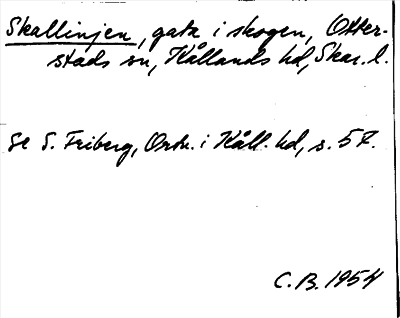 Skallinjen, gata i skogen, Otter-
stads sn, Kållands hd, Skar. l.
Se S. Friberg, Ortn. i Kåll. hd, s. 57.
C.B. 1954